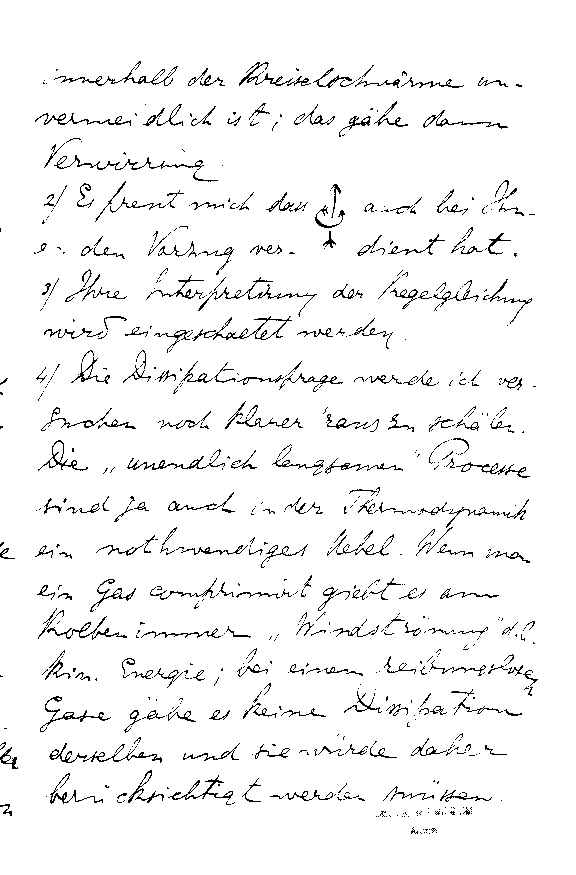 innerhalb der Kreiselschwärme un-
vermeidlich ist; das gäbe dann
Verwirrung.
2) Es freut mich dass auch bei Ihn-
en den Vorzug ver- dient hat.
3) Ihre Interpretirung der Regelgleichung
wird eingeschaltet werden.
4) Die Dissipationsfrage werde ich ver-
suchen noch klarer 'raus zu schälen.
Die „unendlich langsamen" Processe
sind ja auch in der Thermodynamik
ein nothwendiges Uebel. Wenn man
ein Gas comprimirt giebt es am
Kolben immer „Windströmung" d.h.
kin. Energie; bei einem reibungslosen
Gase gäbe es keine Dissipation
derselben und sie würde daher
berücksichtigt werden müssen.